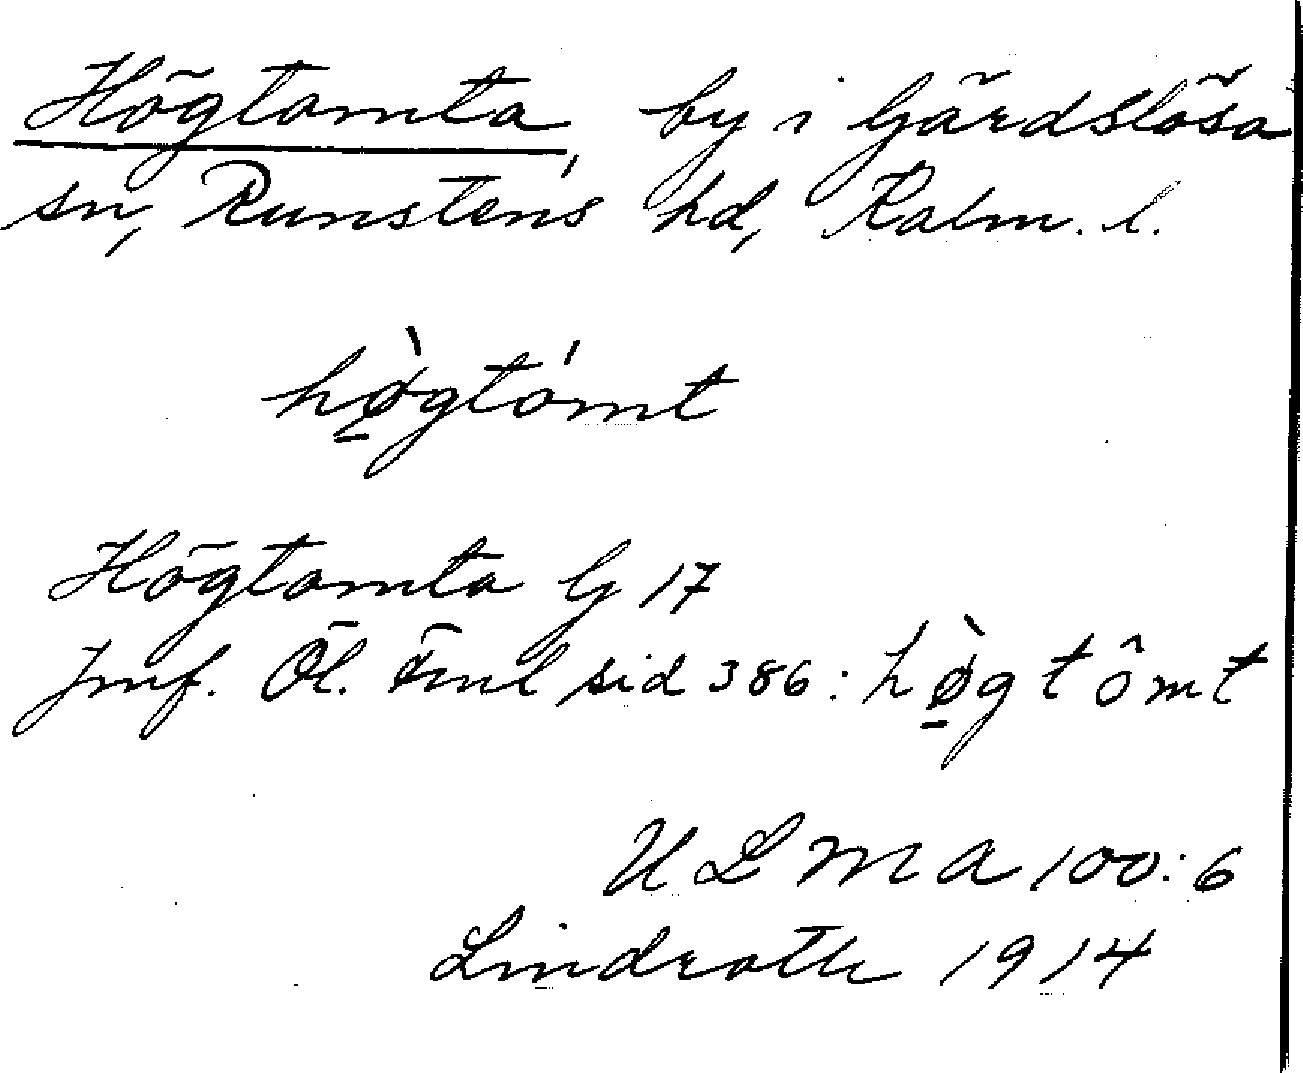 Högtomta by i Gärdslösa
sn, Runstens hd, Kalm. l.
hø̱̀gtómt
Högtomta G 17
Jmf. Öl. Fml sid 386: hø̱̀gtômt
ULMA 100:6
Lindroth 1914